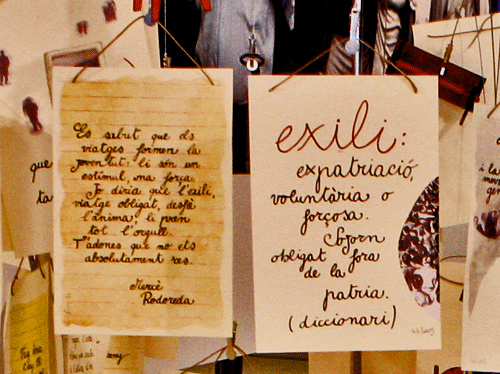 que
ta
Es sabut que els
viatges formen la
joventut: li són un
estímul, una força.
Jo diria que l'exili,
viatge obligat, desfà
l'ànima, li pren
tot l'orgull.
T'adones que no ets
absolutament res.
Mercè
Rodoreda
exili:
expatriació,
voluntària o
forçosa.
Sojorn
obligat fora
de la
patria.
(diccionari)